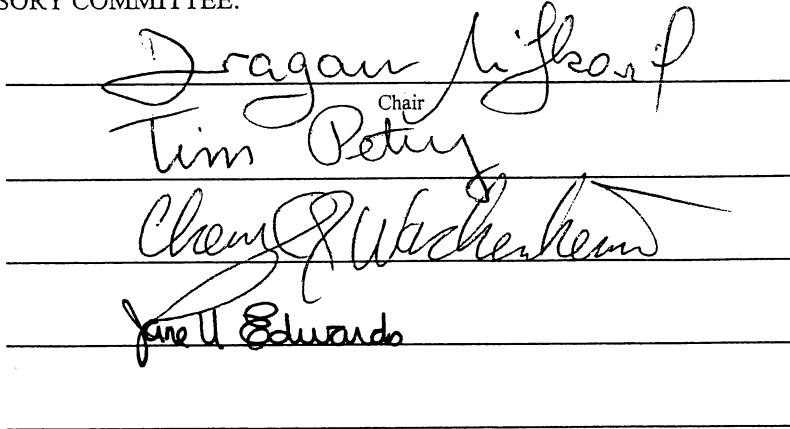 SORY COMMITTEE:
Dragan
Chair
Tim Petry
Cheryl J Wachenheim
Jane U Edwards